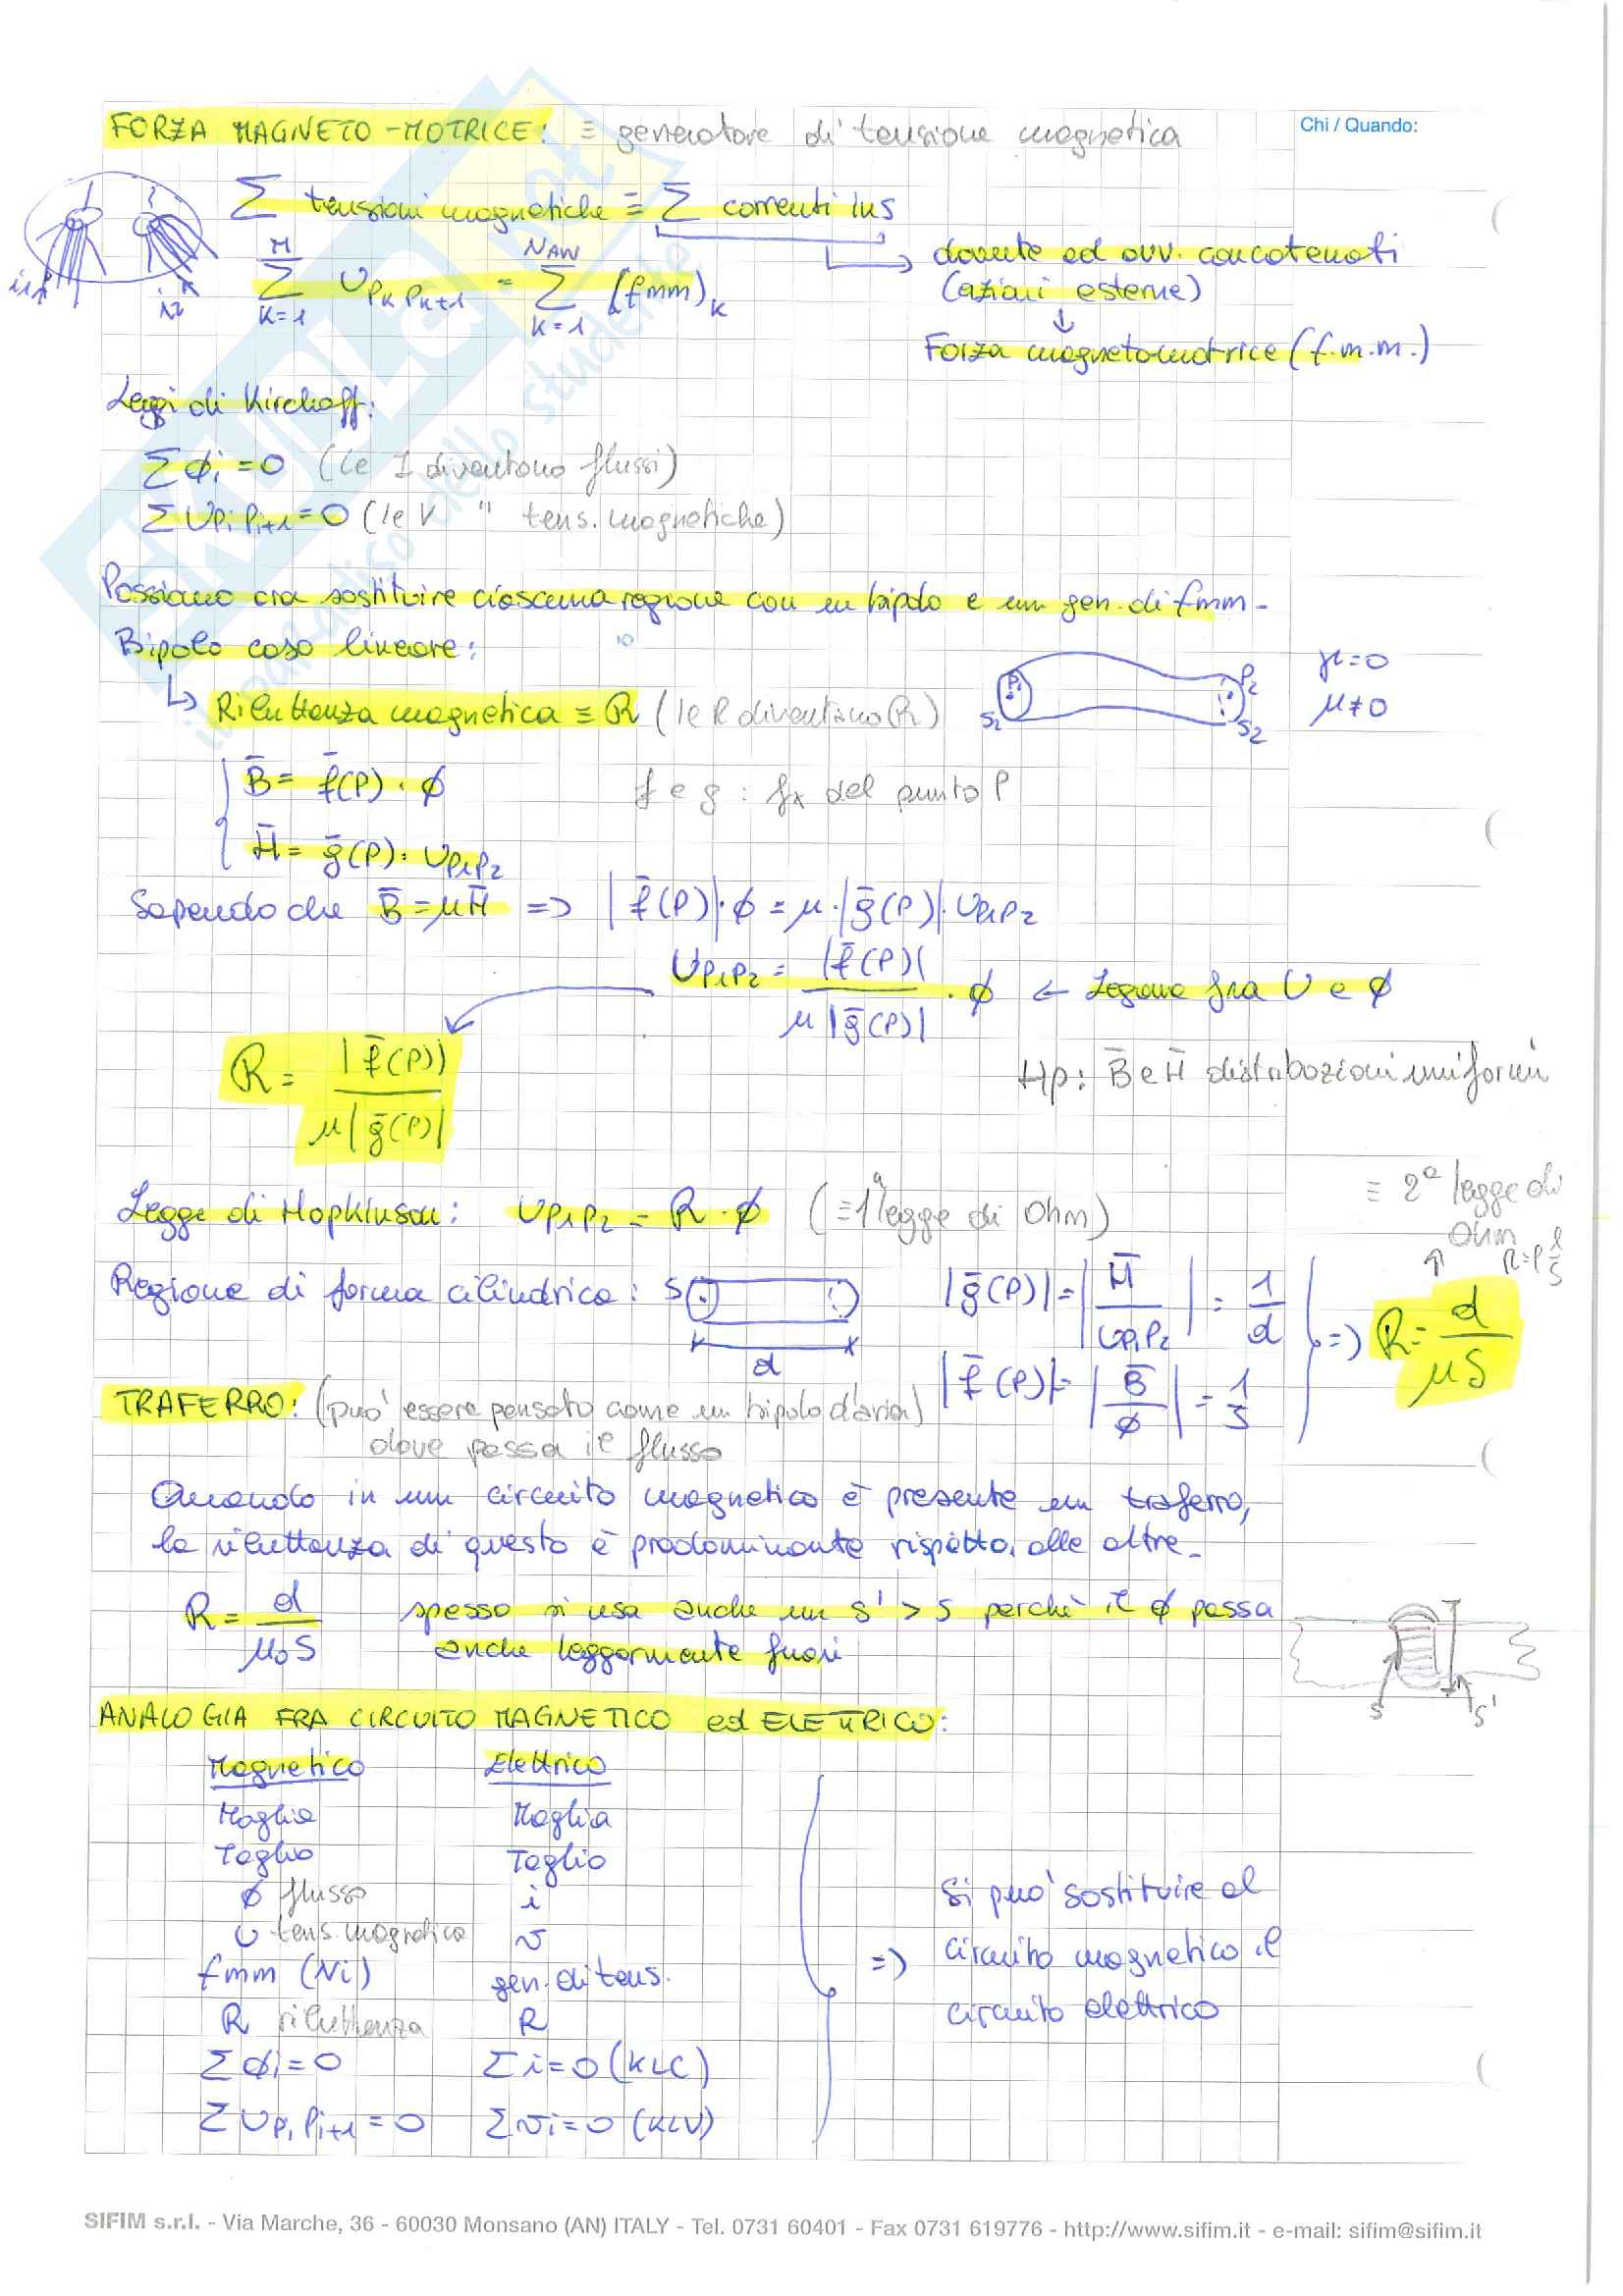 Chi / Quando:
FORZA MAGNETO-MOTRICE: ≡ generatore di tensione magnetica
Σ tensioni magnetiche ≡ Σ correnti ins
dovute ed avv. concatenati
(azioni esterne)
↓
Forza magnetomotrice (f.m.m.)
M Σ K=1 U_PK PK+1 = NAW Σ K=1 (fmm)K
i1 i2
Leggi di Kirchoff:
Σ ϕi = 0 (le I diventano flussi)
Σ UPi Pi+1 = 0 (le V " tens. magnetiche)
Possiamo ora sostituire ciascuna regione con un bipolo e un gen. di fmm-
Bipolo caso lineare:
↳ Riluttanza magnetica ≡ R (le R diventano R)
P1 P2 S2 S2
μ≠0
B̄ = f̄(P) · ϕ
f e g : fx del punto P
H̄ = ḡ(P) · UP1P2
Sapendo che B̄ = μH̄ => |f̄(P)| · ϕ = μ · |ḡ(P)| · UP1P2
UP1P2 = |f̄(P)| / μ|ḡ(P)| · ϕ ← Legame fra U e ϕ
R = |f̄(P)| / μ|ḡ(P)|
Hp: B̄ e H̄ distribuzioni uniformi
Legge di Hopkinson: UP1P2 = R · ϕ (≡ 1ª legge di Ohm)
≡ 2ª legge di
Ohm
R=ρ l/S
Regione di forma cilindrica: S d
|ḡ(P)| = |H̄ / UP1P2| = 1/d
|f̄(P)| = |B̄ / ϕ| = 1/S
=> R = d / μS
TRAFERRO: (può essere pensato come un bipolo d'aria)
dove passa il flusso
Quando in un circuito magnetico è presente un traferro,
la riluttanza di questo è predominante rispetto alle altre-
R = d / μ0S spesso si usa anche un S' > S perchè il ϕ passa
anche leggermente fuori
S S'
ANALOGIA FRA CIRCUITO MAGNETICO ed ELETTRICO:
Magnetico Elettrico
Maglia Maglia
Taglio Taglio
ϕ flusso i
U tens. magnetica v
fmm (Ni) gen. di tens.
R riluttanza R
Σ ϕi = 0 Σ i = 0 (KLC)
Σ UPi Pi+1 = 0 Σ vi = 0 (KLV)
=> Si può sostituire al
circuito magnetico il
circuito elettrico
SIFIM s.r.l. - Via Marche, 36 - 60030 Monsano (AN) ITALY - Tel. 0731 60401 - Fax 0731 619776 - http://www.sifim.it - e-mail: sifim@sifim.it